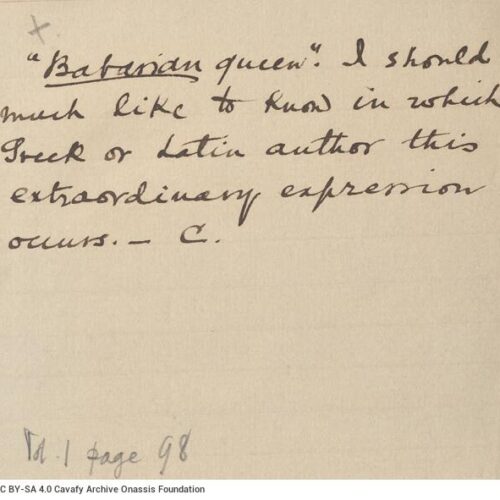 x.
"Babarian queen". I should
much like to know in which
Greek or Latin author this
extraordinary expression
occurs. — C.
Vol. 1 page 98
C BY-SA 4.0 Cavafy Archive Onassis Foundation